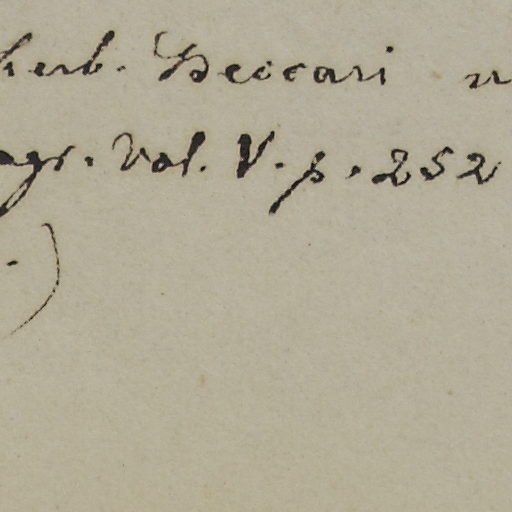 herb. Beccari n
agr. Vol. V. p. 252
.)